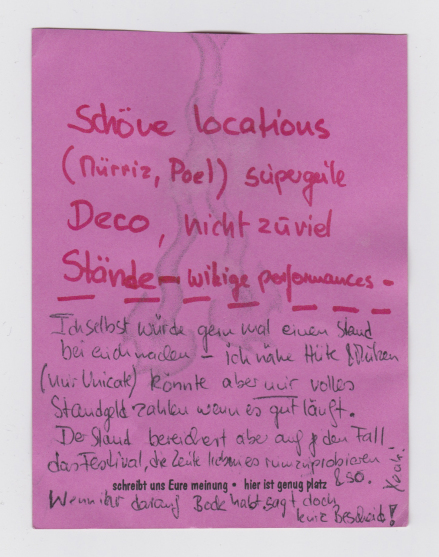 Schöne locations
(Mürriz, Poel) süpergeile
Deco, nicht zúviel
Stände - witzige performances -
Ich selbst würde gern mal einen Stand
bei euch machen - ich nähe Hüte & Mützen
(nur Unicate) könnte aber nur volles
Standgeld zahlen wenn es gut läuft.
Der Stand bereichert aber auf jeden Fall
das Festival, die Leute lieben es rumzuprobieren
&so.
schreibt uns Eure meinung • hier ist genug platz
Wenn ihr darauf Bock habt, sagt doch
kurz Bescheid!